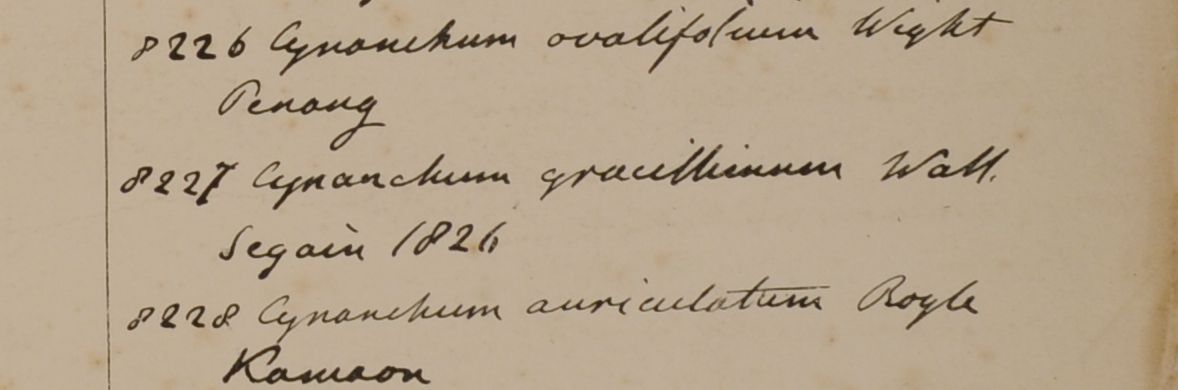 8226 Cynanchum ovalifolium Wight
Penang
8227 Cynanchum gracillimum Wall.
Segain 1826
8228 Cynanchum auriculatum Royle
Kamaon